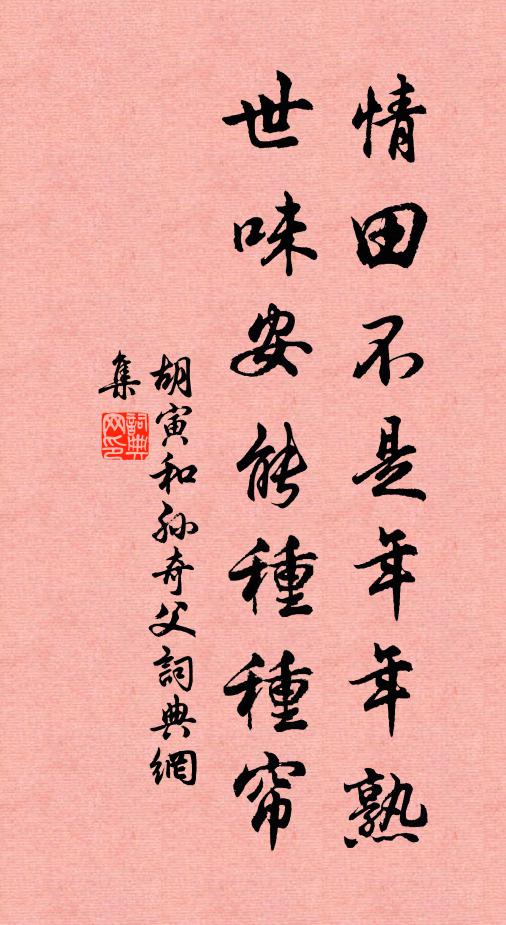 情田不是年年熟
世味安能種種帘
胡寅和孙奇父詞典網
集
詞典
网印